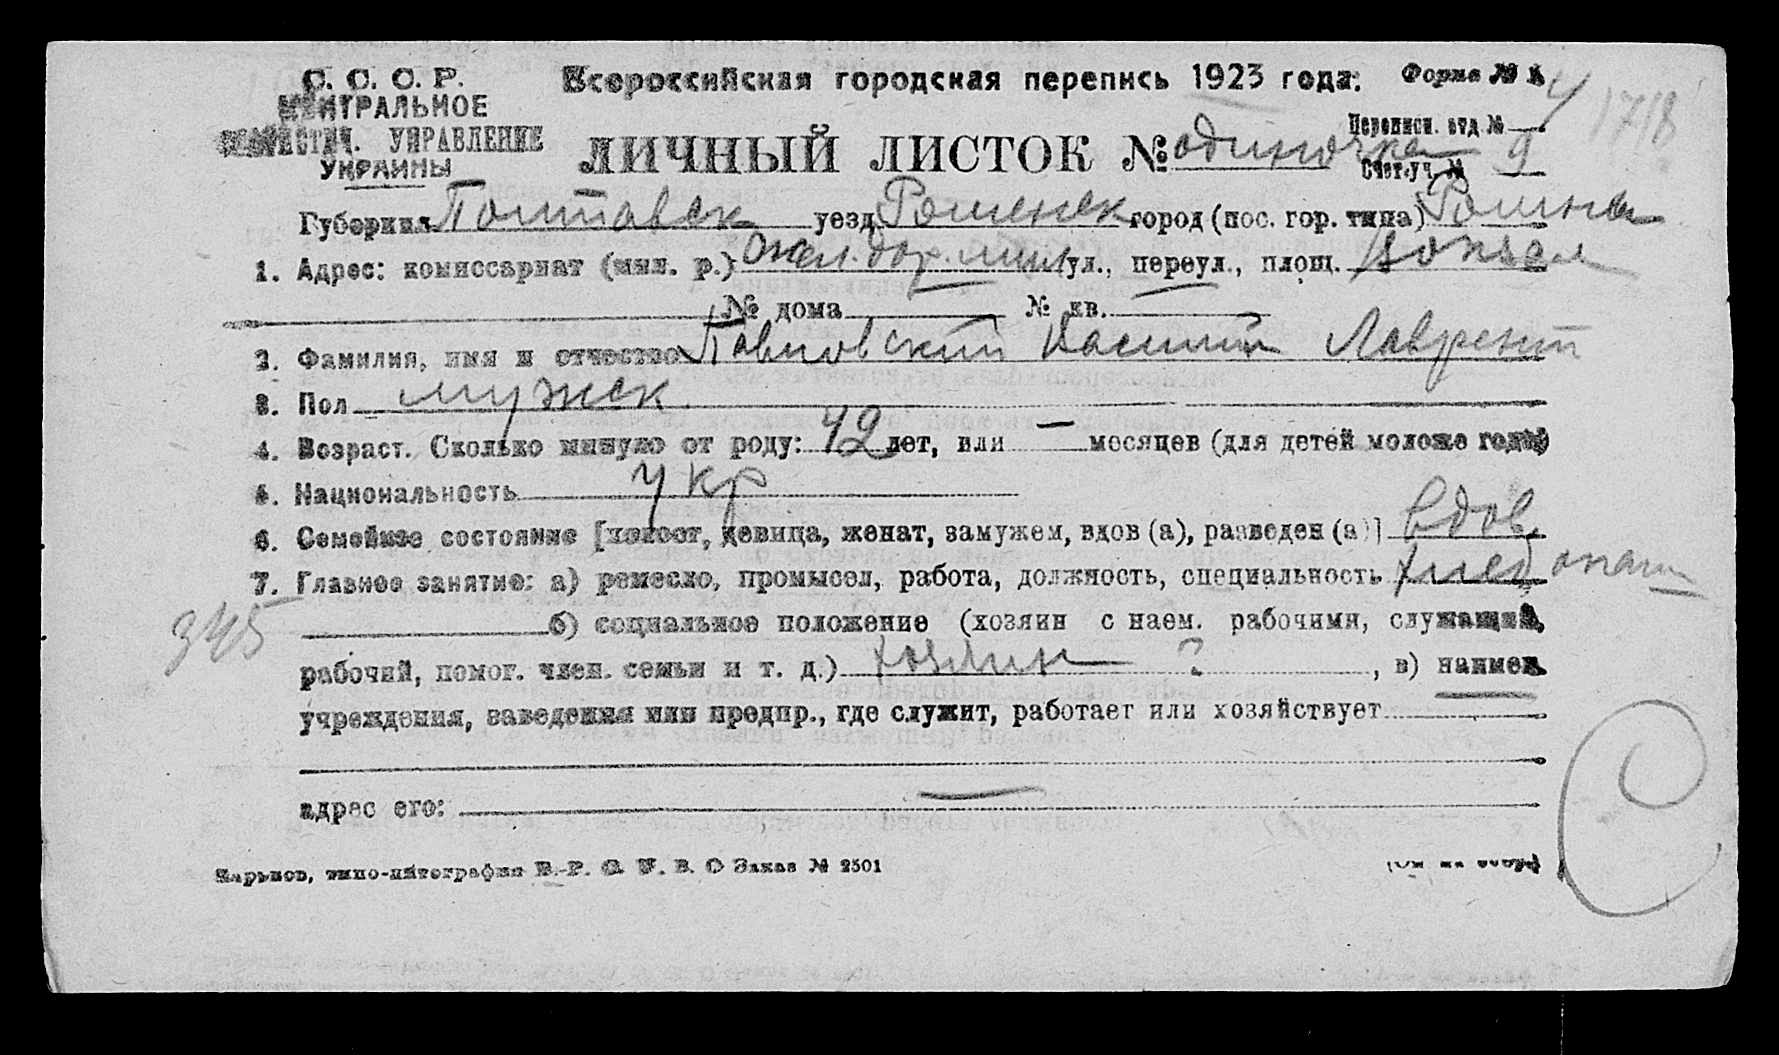 С. С. С. Р.
ЦЕНТРАЛЬНОЕ
СТАТИСТИЧ. УПРАВЛЕНИЕ
УКРАИНЫ
Всероссийская городская перепись 1923 года.
Форма № 1
ЛИЧНЫЙ ЛИСТОК № одиночка
Переписн. отд. № 4 1718
Счет. уч. № 9
Губерния Полтавск уезд Роменск город (пос. гор. типа) Ромны
1. Адрес: комиссариат (мил. р.) жел. дор. мил ул., переул., площ. вокзал
№ дома № кв.
2. Фамилия, имя и отчество Павловский Василий Лаврент
3. Пол мужск
4. Возраст. Сколько минуло от роду: 42 лет, или — месяцев (для детей моложе года)
5. Национальность укр
6. Семейное состояние [холост, девица, женат, замужем, вдов (а), разведен (а)] вдов
7. Главнее занятие: а) ремесло, промысел, работа, должность, специальность хлебопаш
345
б) социальное положение (хозяин с наем. рабочими, служащий,
рабочий, помог. член. семьи и т. д.) хозяин ? , в) наимен.
учреждения, заведения или предпр., где служит, работает или хозяйствует
адрес его: —
Харьков, типо-литография В. Р. С. У. В. О Заказ № 2501